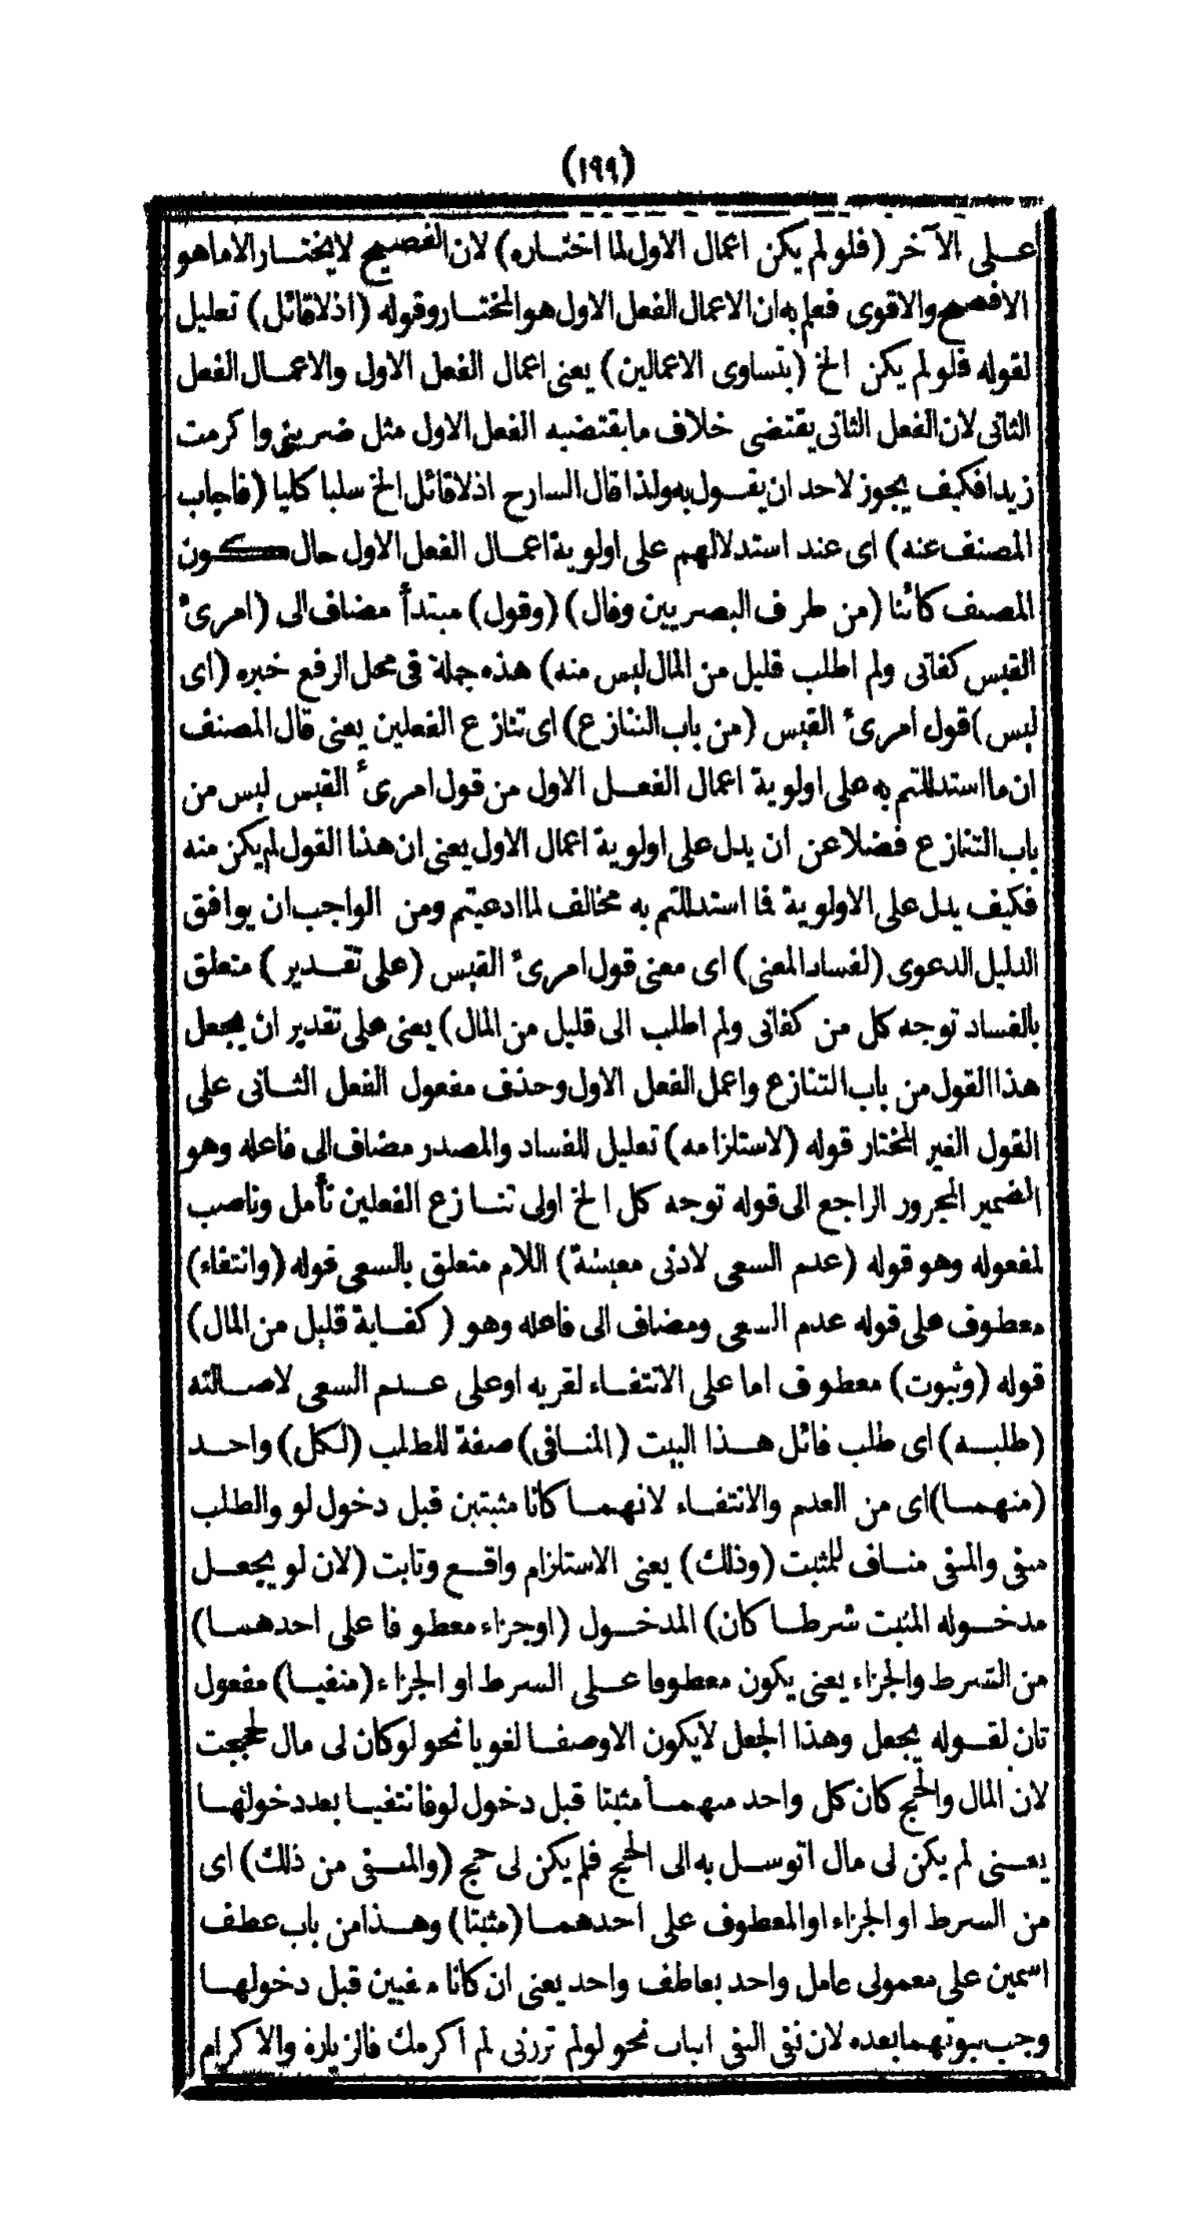 (١٩٩)
على الآخر (فلو لم يكن اعمال الاول لما اختاره) لان الفصيح لايختار الا ماهو
الافصح والاقوى فعلم به ان الاعمال الفعل الاول هو المختار وقوله (اذلاقائل) تعليل
لقوله فلو لم يكن الخ (بتساوى الاعمالين) يعنى اعمال الفعل الاول والاعمال الفعل
الثانى لان الفعل الثانى يقتضى خلاف مايقتضيه الفعل الاول مثل ضربنى واكرمت
زيدا فكيف يجوز لاحد ان يقول به ولذا قال الشارح اذلاقائل الخ سلبا كليا (فاجاب
المصنف عنه) اى عند استدلالهم على اولوية اعمال الفعل الاول حال كون
المصنف كائنا (من طرف البصريين وقال) (وقول) مبتدأ مضاف الى (امرئ
القيس كفانى ولم اطلب قليل من المال ليس منه) هذه جملة فى محل الرفع خبره (اى
ليس) قول امرئ القيس (من باب التنازع) اى تنازع الفعلين يعنى قال المصنف
ان ما استدللتم به على اولوية اعمال الفعل الاول من قول امرئ القيس ليس من
باب التنازع فضلا عن ان يدل على اولوية اعمال الاول يعنى ان هذا القول لم يكن منه
فكيف يدل على الاولوية فما استدللتم به مخالف لما ادعيتم ومن الواجب ان يوافق
الدليل الدعوى (لفساد المعنى) اى معنى قول امرئ القيس (على تقدير) متعلق
بالفساد توجه كل من كفانى ولم اطلب الى قليل من المال) يعنى على تقدير ان يجعل
هذا القول من باب التنازع واعمل الفعل الاول وحذف مفعول الفعل الثانى على
القول الغير المختار قوله (لاستلزامه) تعليل للفساد والمصدر مضاف الى فاعله وهو
الضمير المجرور الراجع الى قوله توجه كل الخ اولى تنازع الفعلين تأمل وناصب
لمفعوله وهو قوله (عدم السعى لادنى معيشة) اللام متعلق بالسعى قوله (وانتفاء)
معطوف على قوله عدم السعى ومضاف الى فاعله وهو (كفاية قليل من المال)
قوله (وثبوت) معطوف اما على الانتفاء لقربه اوعلى عدم السعى لاصالته
(طلبه) اى طلب قائل هذا البيت (المنافى) صفة للطلب (لكل) واحد
(منهما) اى من العدم والانتفاء لانهما كانا مثبتين قبل دخول لو والطلب
منفى والمنفى مناف للمثبت (وذلك) يعنى الاستلزام واقع وثابت (لان لو يجعل
مدخوله المثبت شرطا كان) المدخول (اوجزاء معطوفا على احدهما)
من الشرط والجزاء يعنى يكون معطوفا على الشرط او الجزاء (منفيا) مفعول
ثان لقوله يجعل وهذا الجعل لايكون الا وصفا لغويا نحو لو كان لى مال لحججت
لان المال والحج كان كل واحد منهما مثبتا قبل دخول لو فانتفيا بعد دخولها
يعنى لم يكن لى مال اتوسل به الى الحج فلم يكن لى حج (والمنفى من ذلك) اى
من الشرط او الجزاء او المعطوف على احدهما (مثبتا) وهذا من باب عطف
اسمين على معمولى عامل واحد بعاطف واحد يعنى ان كانا منفيين قبل دخولها
وجب ثبوتهما بعده لان نفى النفى اثبات نحو لو لم تزرنى لم اكرمك فالزيارة والاكرام